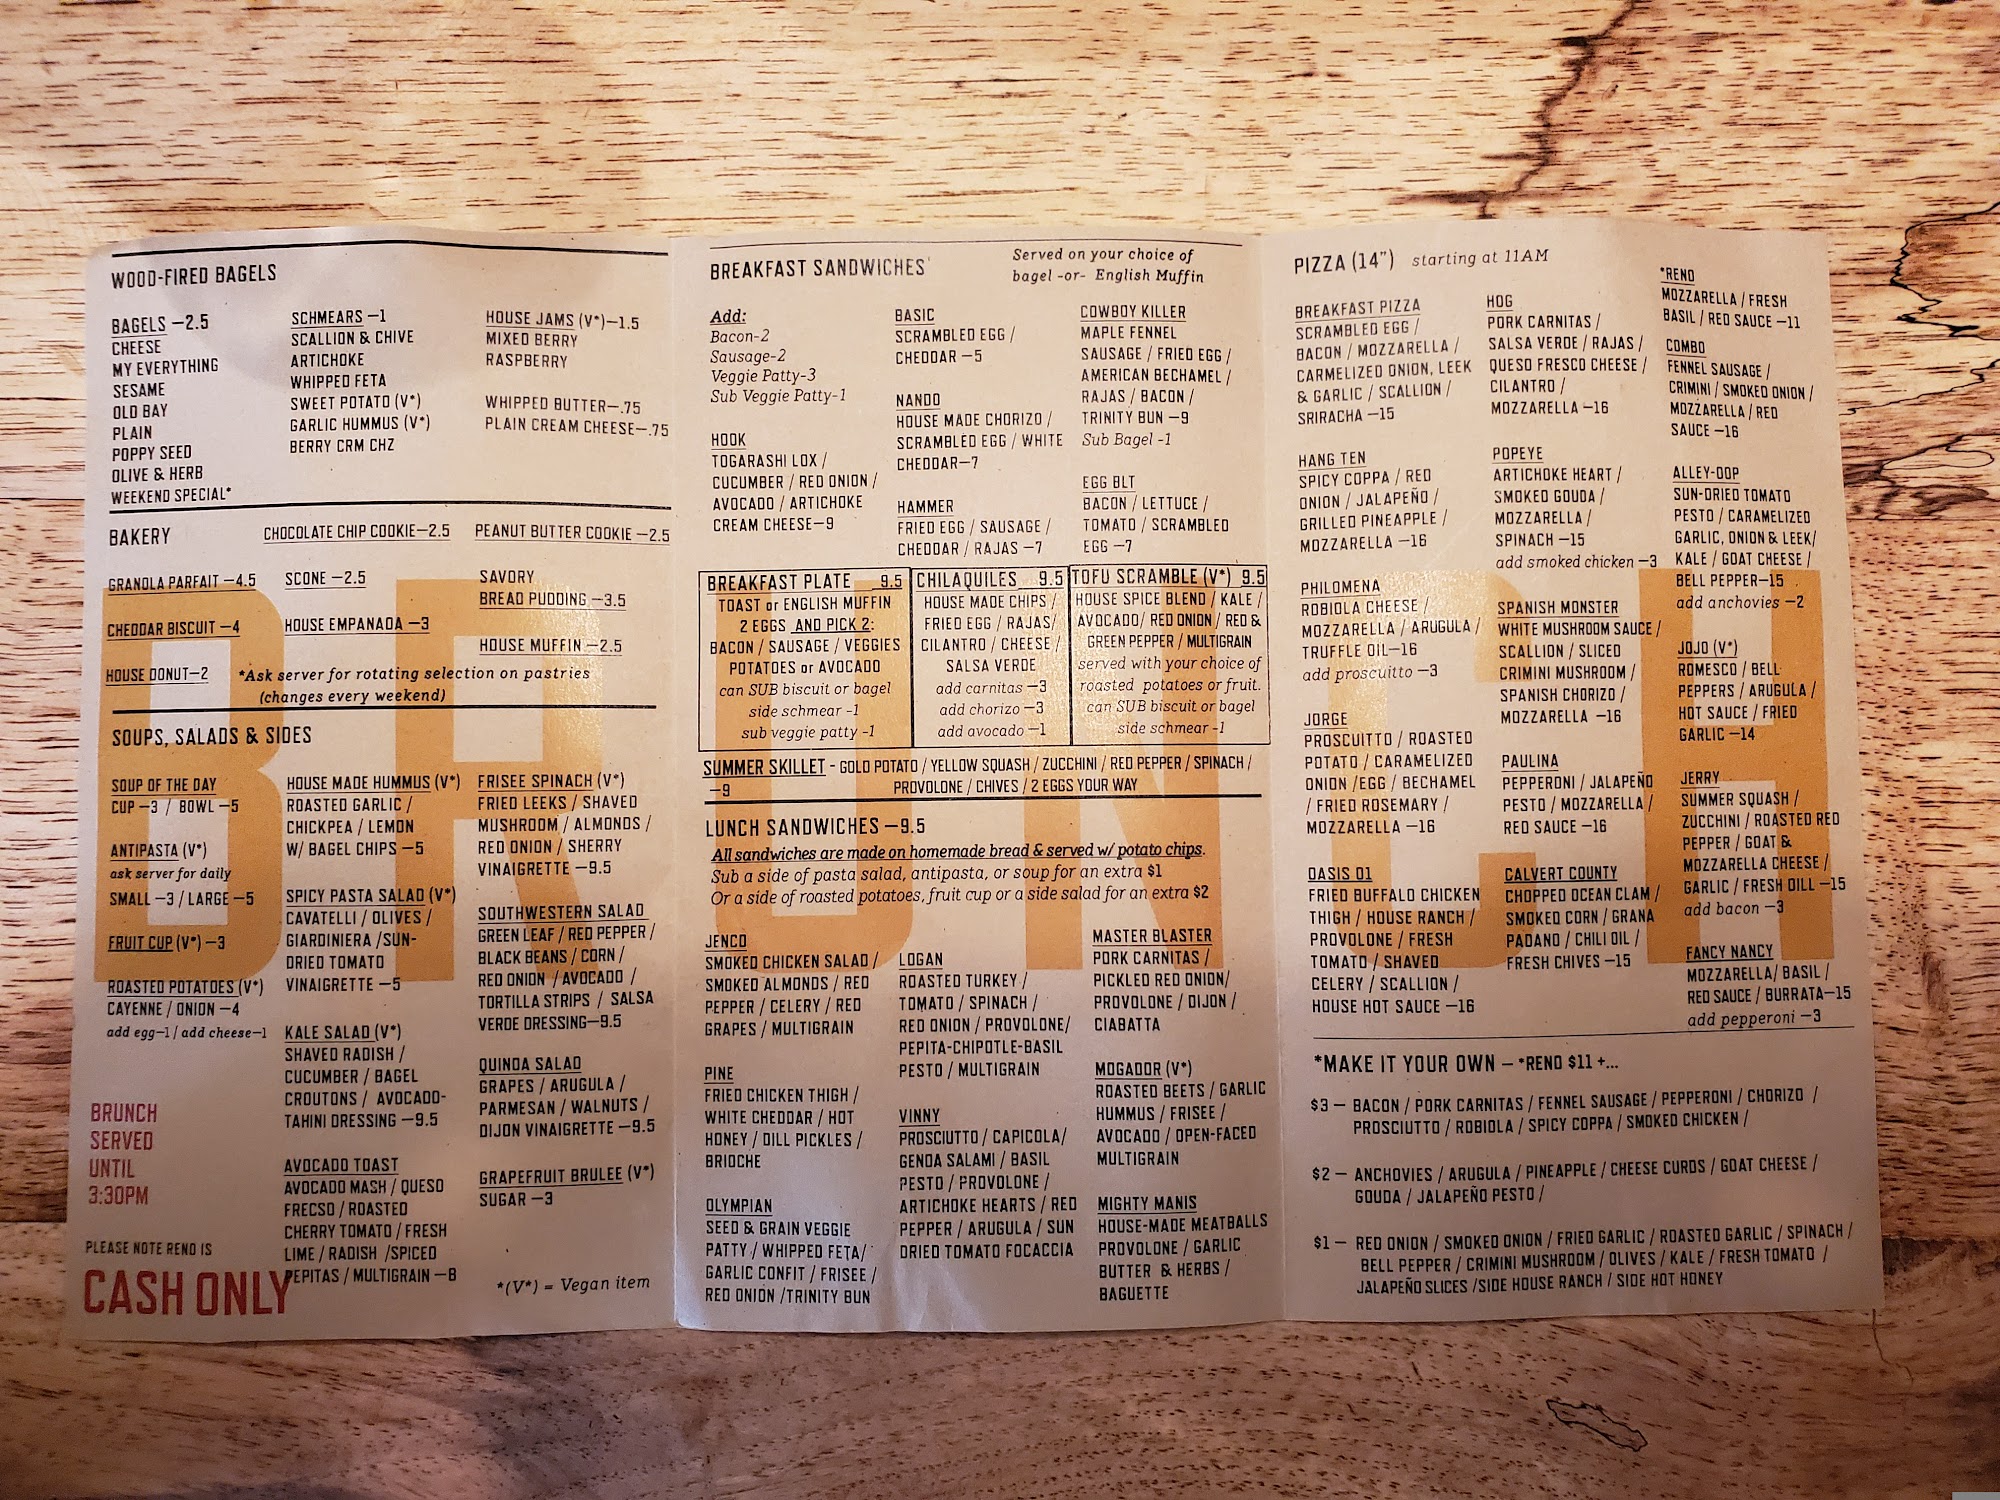 WOOD-FIRED BAGELS
BAGELS —2.5
CHEESE
MY EVERYTHING
SESAME
OLD BAY
PLAIN
POPPY SEED
OLIVE & HERB
WEEKEND SPECIAL*
SCHMEARS —1
SCALLION & CHIVE
ARTICHOKE
WHIPPED FETA
SWEET POTATO (V*)
GARLIC HUMMUS (V*)
BERRY CRM CHZ
HOUSE JAMS (V*)—1.5
MIXED BERRY
RASPBERRY
WHIPPED BUTTER—.75
PLAIN CREAM CHEESE—.75
BAKERY
CHOCOLATE CHIP COOKIE—2.5
PEANUT BUTTER COOKIE —2.5
GRANOLA PARFAIT —4.5
SCONE —2.5
SAVORY
BREAD PUDDING —3.5
CHEDDAR BISCUIT —4
HOUSE EMPANADA —3
HOUSE MUFFIN —2.5
HOUSE DONUT—2
*Ask server for rotating selection on pastries
(changes every weekend)
SOUPS, SALADS & SIDES
SOUP OF THE DAY
CUP —3 / BOWL —5
ANTIPASTA (V*)
ask server for daily
SMALL —3 / LARGE —5
FRUIT CUP (V*) —3
ROASTED POTATOES (V*)
CAYENNE / ONION —4
add egg—1 / add cheese—1
BRUNCH
SERVED
UNTIL
3:30PM
PLEASE NOTE RENO IS
CASH ONLY
HOUSE MADE HUMMUS (V*)
ROASTED GARLIC /
CHICKPEA / LEMON
W/ BAGEL CHIPS —5
SPICY PASTA SALAD (V*)
CAVATELLI / OLIVES /
GIARDINIERA /SUN-
DRIED TOMATO
VINAIGRETTE —5
KALE SALAD (V*)
SHAVED RADISH /
CUCUMBER / BAGEL
CROUTONS / AVOCADO-
TAHINI DRESSING —9.5
AVOCADO TOAST
AVOCADO MASH / QUESO
FRECSO / ROASTED
CHERRY TOMATO / FRESH
LIME / RADISH /SPICED
PEPITAS / MULTIGRAIN —8
FRISEE SPINACH (V*)
FRIED LEEKS / SHAVED
MUSHROOM / ALMONDS /
RED ONION / SHERRY
VINAIGRETTE —9.5
SOUTHWESTERN SALAD
GREEN LEAF / RED PEPPER /
BLACK BEANS / CORN /
RED ONION / AVOCADO /
TORTILLA STRIPS / SALSA
VERDE DRESSING—9.5
QUINOA SALAD
GRAPES / ARUGULA /
PARMESAN / WALNUTS /
DIJON VINAIGRETTE —9.5
GRAPEFRUIT BRULEE (V*)
SUGAR —3
*(V*) = Vegan item
BRUNCH
BREAKFAST SANDWICHES
Served on your choice of
bagel -or- English Muffin
Add:
Bacon-2
Sausage-2
Veggie Patty-3
Sub Veggie Patty-1
HOOK
TOGARASHI LOX /
CUCUMBER / RED ONION /
AVOCADO / ARTICHOKE
CREAM CHEESE—9
BASIC
SCRAMBLED EGG /
CHEDDAR —5
NANDO
HOUSE MADE CHORIZO /
SCRAMBLED EGG / WHITE
CHEDDAR—7
HAMMER
FRIED EGG / SAUSAGE /
CHEDDAR / RAJAS —7
COWBOY KILLER
MAPLE FENNEL
SAUSAGE / FRIED EGG /
AMERICAN BECHAMEL /
RAJAS / BACON /
TRINITY BUN —9
Sub Bagel -1
EGG BLT
BACON / LETTUCE /
TOMATO / SCRAMBLED
EGG —7
BREAKFAST PLATE 9.5
TOAST or ENGLISH MUFFIN
2 EGGS AND PICK 2:
BACON / SAUSAGE / VEGGIES
POTATOES or AVOCADO
can SUB biscuit or bagel
side schmear -1
sub veggie patty -1
CHILAQUILES 9.5
HOUSE MADE CHIPS /
FRIED EGG / RAJAS/
CILANTRO / CHEESE /
SALSA VERDE
add carnitas —3
add chorizo —3
add avocado —1
TOFU SCRAMBLE (V*) 9.5
HOUSE SPICE BLEND / KALE /
AVOCADO/ RED ONION / RED &
GREEN PEPPER / MULTIGRAIN
served with your choice of
roasted potatoes or fruit.
can SUB biscuit or bagel
side schmear -1
SUMMER SKILLET - GOLD POTATO / YELLOW SQUASH / ZUCCHINI / RED PEPPER / SPINACH /
—9 PROVOLONE / CHIVES / 2 EGGS YOUR WAY
LUNCH SANDWICHES —9.5
All sandwiches are made on homemade bread & served w/ potato chips.
Sub a side of pasta salad, antipasta, or soup for an extra $1
Or a side of roasted potatoes, fruit cup or a side salad for an extra $2
JENCO
SMOKED CHICKEN SALAD /
SMOKED ALMONDS / RED
PEPPER / CELERY / RED
GRAPES / MULTIGRAIN
PINE
FRIED CHICKEN THIGH /
WHITE CHEDDAR / HOT
HONEY / DILL PICKLES /
BRIOCHE
OLYMPIAN
SEED & GRAIN VEGGIE
PATTY / WHIPPED FETA/
GARLIC CONFIT / FRISEE /
RED ONION /TRINITY BUN
LOGAN
ROASTED TURKEY /
TOMATO / SPINACH /
RED ONION / PROVOLONE/
PEPITA-CHIPOTLE-BASIL
PESTO / MULTIGRAIN
VINNY
PROSCIUTTO / CAPICOLA/
GENOA SALAMI / BASIL
PESTO / PROVOLONE /
ARTICHOKE HEARTS / RED
PEPPER / ARUGULA / SUN
DRIED TOMATO FOCACCIA
MASTER BLASTER
PORK CARNITAS /
PICKLED RED ONION/
PROVOLONE / DIJON /
CIABATTA
MOGADOR (V*)
ROASTED BEETS / GARLIC
HUMMUS / FRISEE /
AVOCADO / OPEN-FACED
MULTIGRAIN
MIGHTY MANIS
HOUSE-MADE MEATBALLS
PROVOLONE / GARLIC
BUTTER & HERBS /
BAGUETTE
PIZZA (14") starting at 11AM
BREAKFAST PIZZA
SCRAMBLED EGG /
BACON / MOZZARELLA /
CARMELIZED ONION, LEEK
& GARLIC / SCALLION /
SRIRACHA —15
HANG TEN
SPICY COPPA / RED
ONION / JALAPEÑO /
GRILLED PINEAPPLE /
MOZZARELLA —16
PHILOMENA
ROBIOLA CHEESE /
MOZZARELLA / ARUGULA /
TRUFFLE OIL—16
add proscuitto —3
JORGE
PROSCUITTO / ROASTED
POTATO / CARAMELIZED
ONION /EGG / BECHAMEL
/ FRIED ROSEMARY /
MOZZARELLA —16
OASIS 01
FRIED BUFFALO CHICKEN
THIGH / HOUSE RANCH /
PROVOLONE / FRESH
TOMATO / SHAVED
CELERY / SCALLION /
HOUSE HOT SAUCE —16
HOG
PORK CARNITAS /
SALSA VERDE / RAJAS /
QUESO FRESCO CHEESE /
CILANTRO /
MOZZARELLA —16
POPEYE
ARTICHOKE HEART /
SMOKED GOUDA /
MOZZARELLA /
SPINACH —15
add smoked chicken —3
SPANISH MONSTER
WHITE MUSHROOM SAUCE /
SCALLION / SLICED
CRIMINI MUSHROOM /
SPANISH CHORIZO /
MOZZARELLA —16
PAULINA
PEPPERONI / JALAPEÑO
PESTO / MOZZARELLA /
RED SAUCE —16
CALVERT COUNTY
CHOPPED OCEAN CLAM /
SMOKED CORN / GRANA
PADANO / CHILI OIL /
FRESH CHIVES —15
*RENO
MOZZARELLA / FRESH
BASIL / RED SAUCE —11
COMBO
FENNEL SAUSAGE /
CRIMINI / SMOKED ONION /
MOZZARELLA / RED
SAUCE —16
ALLEY-OOP
SUN-DRIED TOMATO
PESTO / CARAMELIZED
GARLIC, ONION & LEEK/
KALE / GOAT CHEESE /
BELL PEPPER—15
add anchovies —2
JOJO (V*)
ROMESCO / BELL
PEPPERS / ARUGULA /
HOT SAUCE / FRIED
GARLIC —14
JERRY
SUMMER SQUASH /
ZUCCHINI / ROASTED RED
PEPPER / GOAT &
MOZZARELLA CHEESE /
GARLIC / FRESH DILL —15
add bacon —3
FANCY NANCY
MOZZARELLA/ BASIL /
RED SAUCE / BURRATA—15
add pepperoni —3
*MAKE IT YOUR OWN — *RENO $11 +...
$3 — BACON / PORK CARNITAS / FENNEL SAUSAGE / PEPPERONI / CHORIZO /
PROSCIUTTO / ROBIOLA / SPICY COPPA / SMOKED CHICKEN /
$2 — ANCHOVIES / ARUGULA / PINEAPPLE / CHEESE CURDS / GOAT CHEESE /
GOUDA / JALAPEÑO PESTO /
$1 — RED ONION / SMOKED ONION / FRIED GARLIC / ROASTED GARLIC / SPINACH /
BELL PEPPER / CRIMINI MUSHROOM / OLIVES / KALE / FRESH TOMATO /
JALAPEÑO SLICES /SIDE HOUSE RANCH / SIDE HOT HONEY